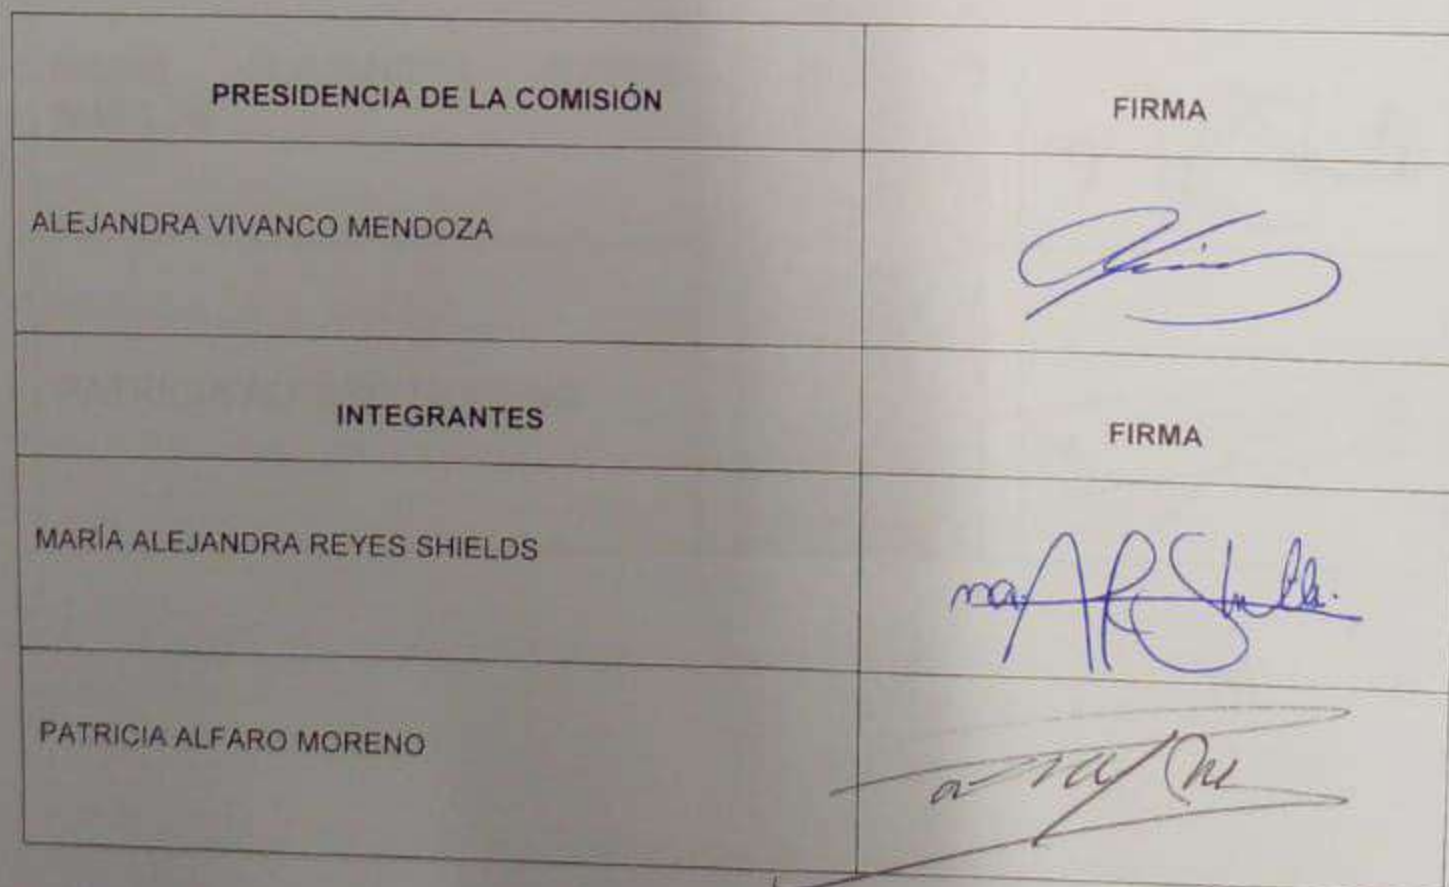 PRESIDENCIA DE LA COMISIÓN FIRMA
ALEJANDRA VIVANCO MENDOZA
INTEGRANTES FIRMA
MARÍA ALEJANDRA REYES SHIELDS
PATRICIA ALFARO MORENO